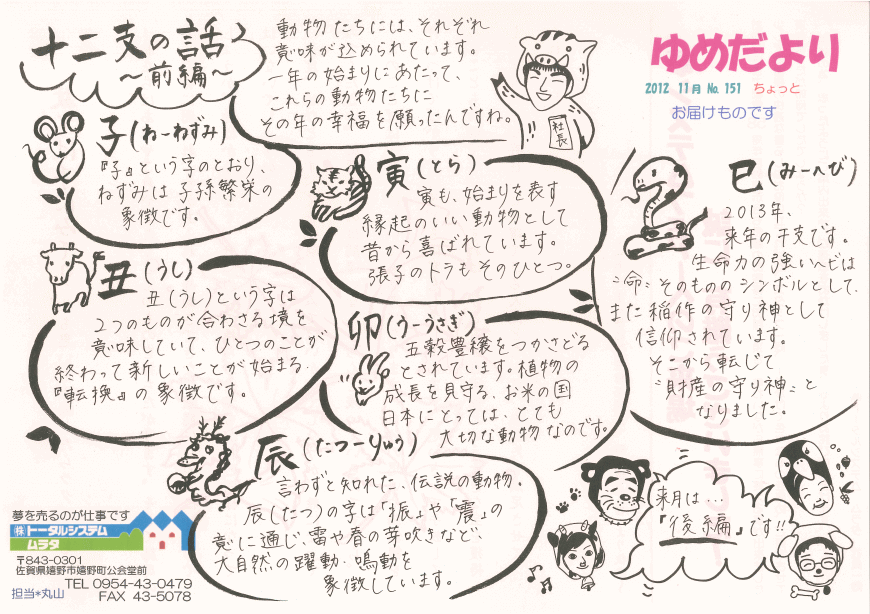 十二支の話
～前編～
動物たちには、それぞれ
意味が込められています。
一年の始まりにあたって、
これらの動物たちに
その年の幸福を願ったんですね。
社長
ゆめだより
2012 11月 No. 151 ちょっと
お届けものです
子(ねーねずみ)
『子』という字のとおり、
ねずみは子孫繁栄の
象徴です。
丑(うし)
丑(うし)という字は
2つのものが合わさる境を
意味していて、ひとつのことが
終わって新しいことが始まる
『転換』の象徴です。
寅(とら)
寅も、始まりを表す
縁起のいい動物として
昔から喜ばれています。
張子のトラもそのひとつ。
卯(うーうさぎ)
五穀豊穣をつかさどる
とされています。植物の
成長を見守る、お米の国
日本にとっては、とても
大切な動物なのです。
辰(たつーりゅう)
言わずと知れた、伝説の動物。
辰(たつ)の字は「振」や「震」の
意に通じ、雷や春の芽吹きなど、
大自然の躍動・鳴動を
象徴しています。
巳(みーへび)
2013年、
来年の干支です。
生命力の強いヘビは
"命"そのもののシンボルとして、
また稲作の守り神として
信仰されています。
そこから転じて
"財産の守り神"と
なりました。
来月は…
「後編」です!!
夢を売るのが仕事です
(株)トータルシステム
ムラタ
〒843-0301
佐賀県嬉野市嬉野町公会堂前
TEL 0954-43-0479
担当*丸山 FAX 43-5078